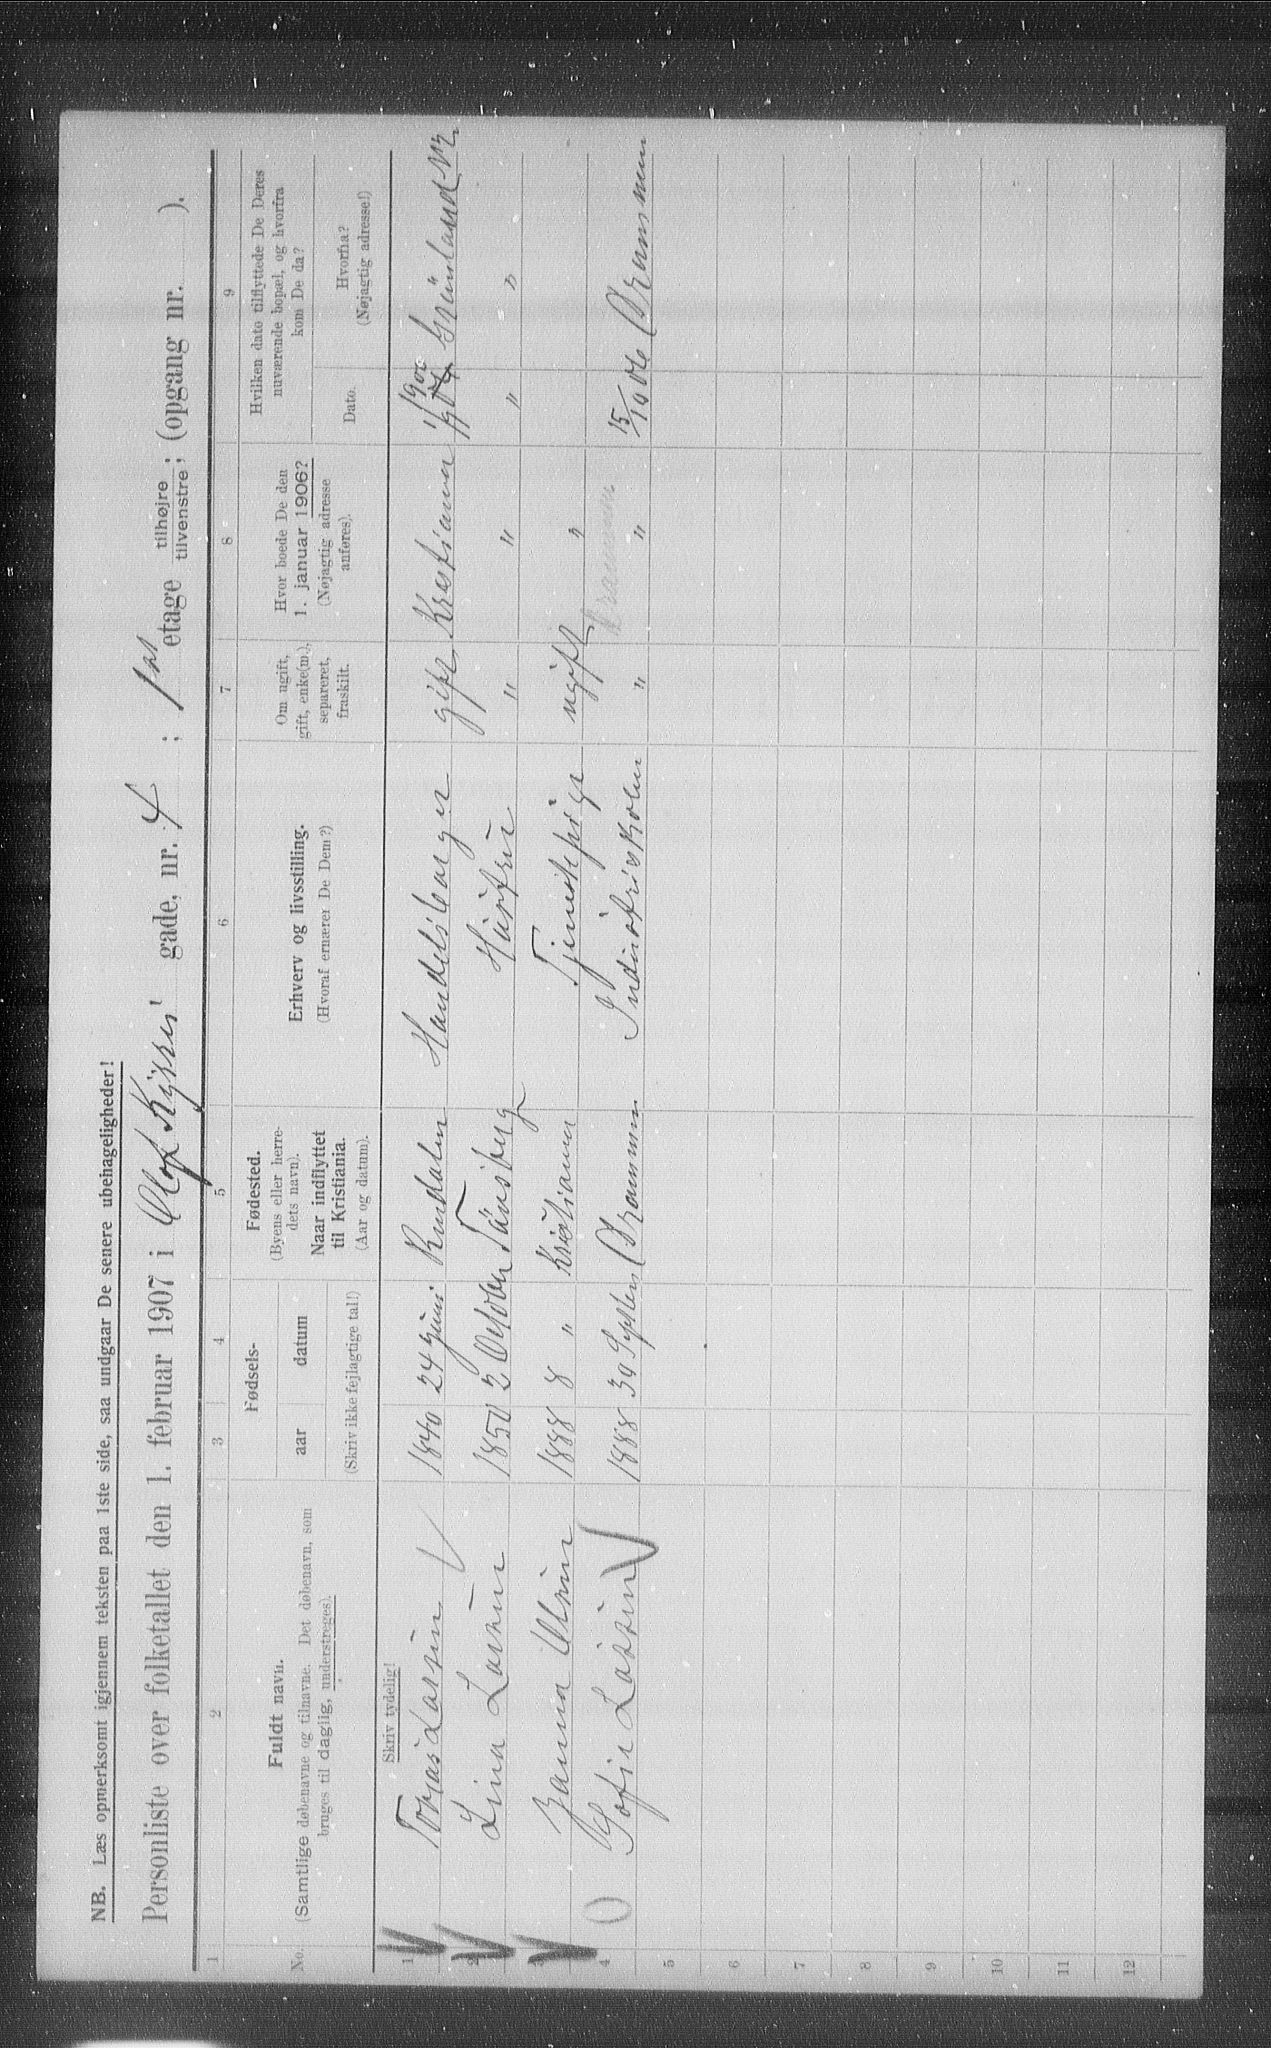 NB. Læs opmerksomt igjennem teksten paa 1ste side, saa undgaar De senere ubehageligheder!
Personliste over folketallet den 1. februar 1907 i Olaf Kyrres' gade, nr. 4 ; 1ste etage tilhøjre tilvenstre; (opgang nr. ).
1 2 3 4 5 6 7 8 9
No.
Fuldt navn.
(Samtlige døbenavne og tilnavne. Det døbenavn, som
bruges til daglig, understreges).
Fødsels-
aar datum
(Skriv ikke fejlagtige tal!)
Fødested.
(Byens eller herre-
dets navn).
Naar indflyttet
til Kristiania.
(Aar og datum).
Erhverv og livsstilling.
(Hvoraf ernærer De Dem?)
Om ugift,
gift, enke(m.),
separeret,
fraskilt.
Hvor boede De den
1. januar 1906?
(Nøjagtig adresse
anføres).
Hvilken dato tilflyttede De Deres
nuværende bopæl, og hvorfra
kom De da?
Dato.
Hvorfra?
(Nøjagtig adresse!)
Skriv tydelig!
1 Tobias Larsen 1840 24 Juni Handelsborger gift Kristiania 1/1 1900 Grünland
2 Lina Larsen 1850 2 Oktober Tønsberg Hustru " " " "
3 Olsen 1888 8 " Kristiania Tjenestepige ugift "
4 Sofie Larsen 1888 30 Septem Drammen Industriskolen " " Drammen 15/10 06 Drammen
5
6
7
8
9
10
11
12